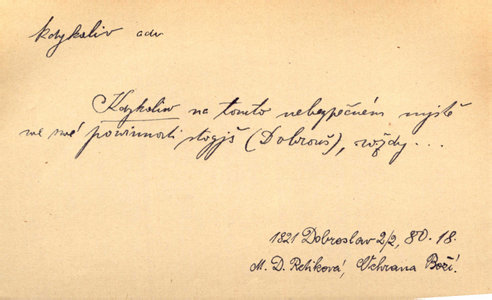 kdykoliv adv
Kdykoliw na tomto nebezpečném mjstě
we své powinnosti stogjš (Dobrouš), wždy ...
1821 Dobroslav 2/2, 80. 18.
M. D. Retiková, Ochrana Boží.